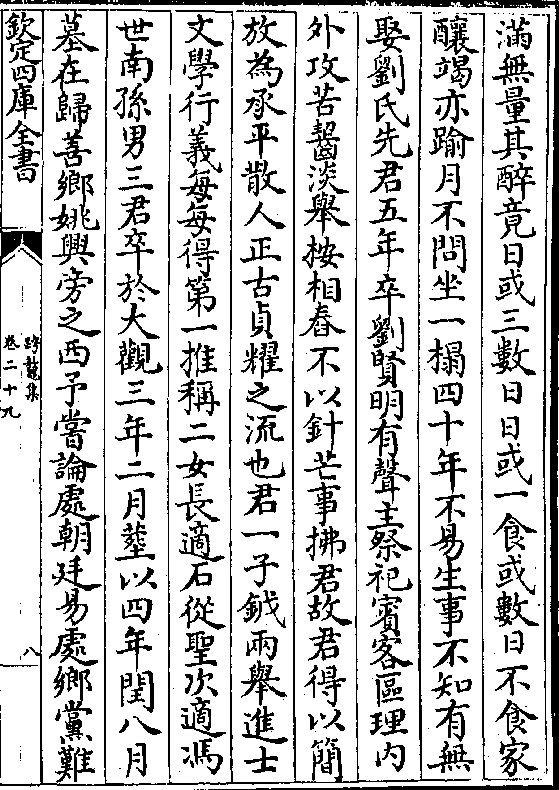 滿無量其醉竟日或三數日日或一食或數日不食家
釀竭亦踰月不問坐一榻四十年不易生事不知有無
娶劉氏先君五年卒劉賢明有聲主祭祀賓客區理内
外攻苦齧淡舉按相舂不以針芒事拂君故君得以簡
放為承平散人正古貞耀之流也君一子鉞兩舉進士
文學行義每每得第一推稱二女長適石從聖次適馮
世南孫男三君卒於大觀三年二月塟以四年閏八月
墓在歸善鄉姚興旁之西予嘗論處朝廷易處鄉黨難
欽定四庫全書
跨鼇集
卷二十九
八